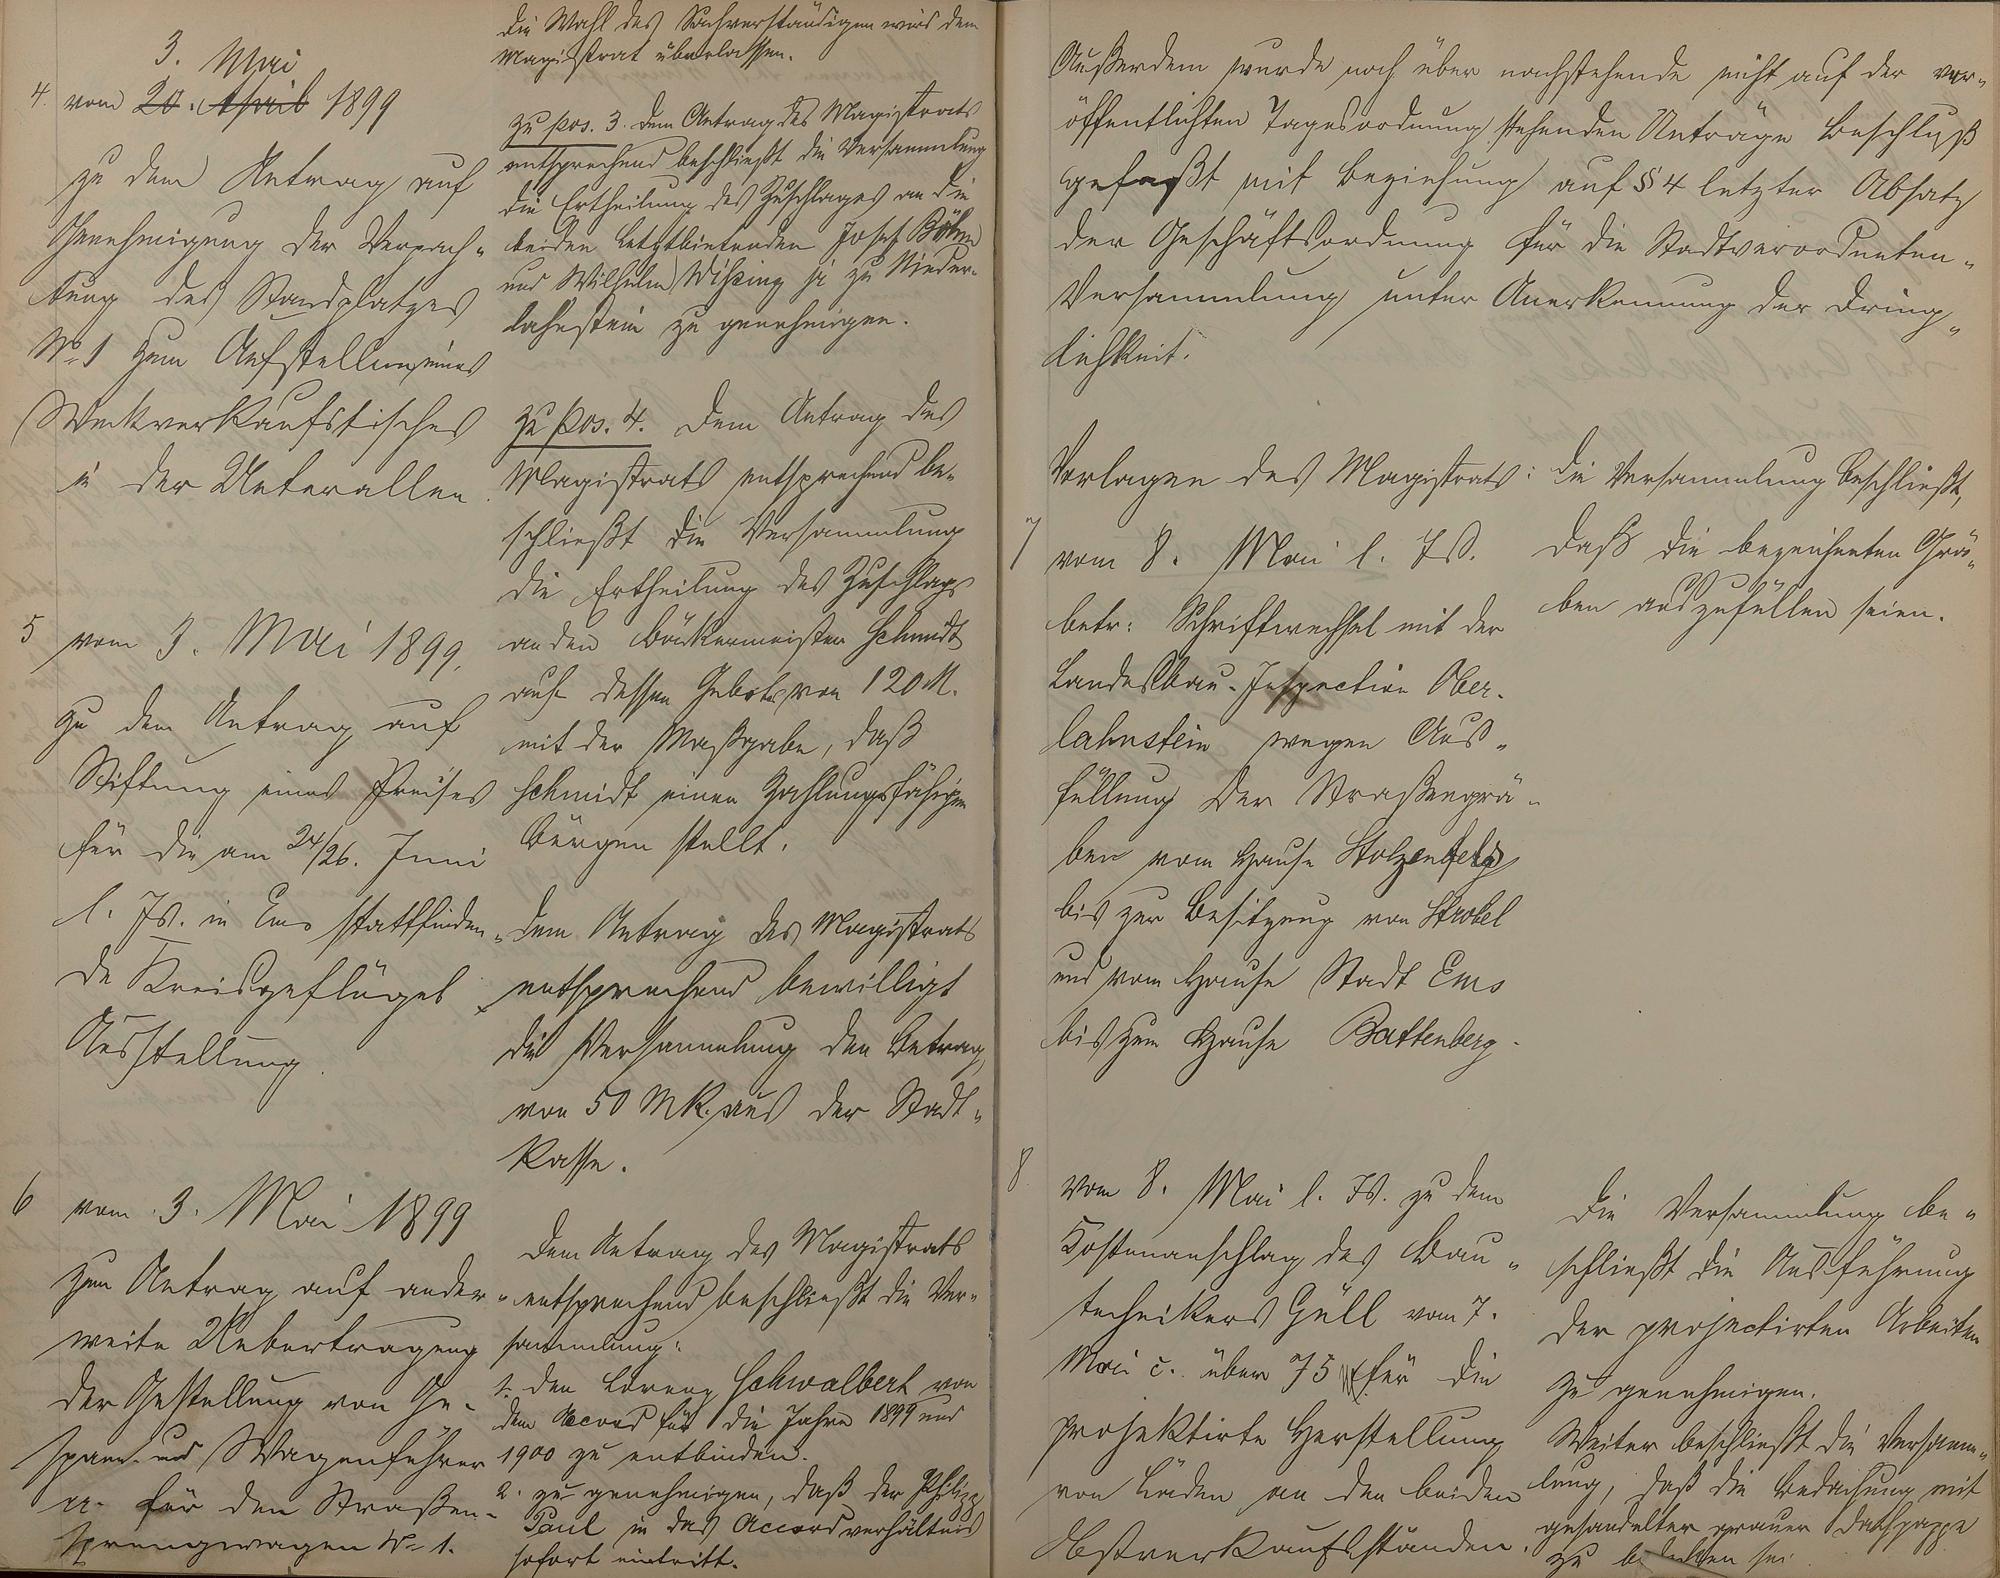 3. Mai
4. vom 20. April 1899
zu dem Antrag auf
Genehmigung der Verpach-
tung des Standplatzes
No 1 zum Aufstellen eines
Weckverkaufstisches
in der Unterallee
5 vom 3. Mai 1899,
zu dem Antrag auf
Stiftung eines Preises
für die am 24/26. Juni
l. Js. in Ems stattfinden-
de Kreisgeflügel
Ausstellung
6 vom 3. Mai 1899
zum Antrag auf ander-
weite Uebertragung
der Gestellung von Ge-
spann und Wagenführer
für den Straßen-
sprengwagen No 1.
Die Wahl des Sachverständigen wird dem
Magistrat überlassen.
zu pos. 3. Dem Antrag des Magistrats
entsprechend beschließt die Versammlung
die Ertheilung des Zuschlages an die
beiden Letztbietenden Josef Böhm
und Wilhelm zu Nieder-
lahnstein zu genehmigen.
zu pos. 4. Dem Antrag des
Magistrats entsprechend be-
schließt die Versammlung
die Ertheilung des Zuschlags
an den Bäckermeister Schmidt
auf dessen Gebot von 120 M.
mit der Maßgabe, daß
Schmidt einen zahlungsfähigen
Bürgen stellt.
Dem Antrag des Magistrats
entsprechend bewilligt
die Versammlung den Betrag
von 50 Mk. aus der Stadt-
kasse.
Dem Antrag des Magistrats
entsprechend beschließt die Ver-
sammlung:
1. den Lorenz Schwalbert von
dem Accord für die Jahre 1899 und
1900 zu entbinden.
2. zu genehmigen, daß der Philipp
Paul in das Accordverhältnis
sofort eintritt.
Außerdem wurde noch über nachstehende nicht auf der ver-
öffentlichten Tagesordnung stehenden Anträge Beschluß
gefaßt mit Beziehung auf § 4 letzter Absatz
der Geschäftsordnung für die Stadtverordneten-
Versammlung unter Anerkennung der Dring-
lichkeit.
Vorlagen des Magistrats:
7 vom 8. Mai l. Js.
betr: Schriftwechsel mit der
Landesbau-Inspection Ober-
lahnstein wegen Aus-
füllung der Straßengrä-
ben vom Hause Stolzenfels
bis zur Besitzung von Strobel
und vom Hause Stadt Ems
bis zum Hause Battenberg.
Die Versammlung beschließt,
daß die bezeichneten Grä-
ben auszufüllen seien.
8 vom 8. Mai l. Js. zu dem
Kostenanschlag des Bau-
technikers Güll vom 7.
Mai c. über 75 M für die
projektirte Herstellung
von Läden an den beiden
Obstverkaufsständen.
Die Versammlung be-
schließt die Ausführung
der projectirten Arbeiten
zu genehmigen.
Weiter beschließt die Versamm-
lung, daß die Bedachung mit
gesandelter grauer Dachpappe
zu sei.